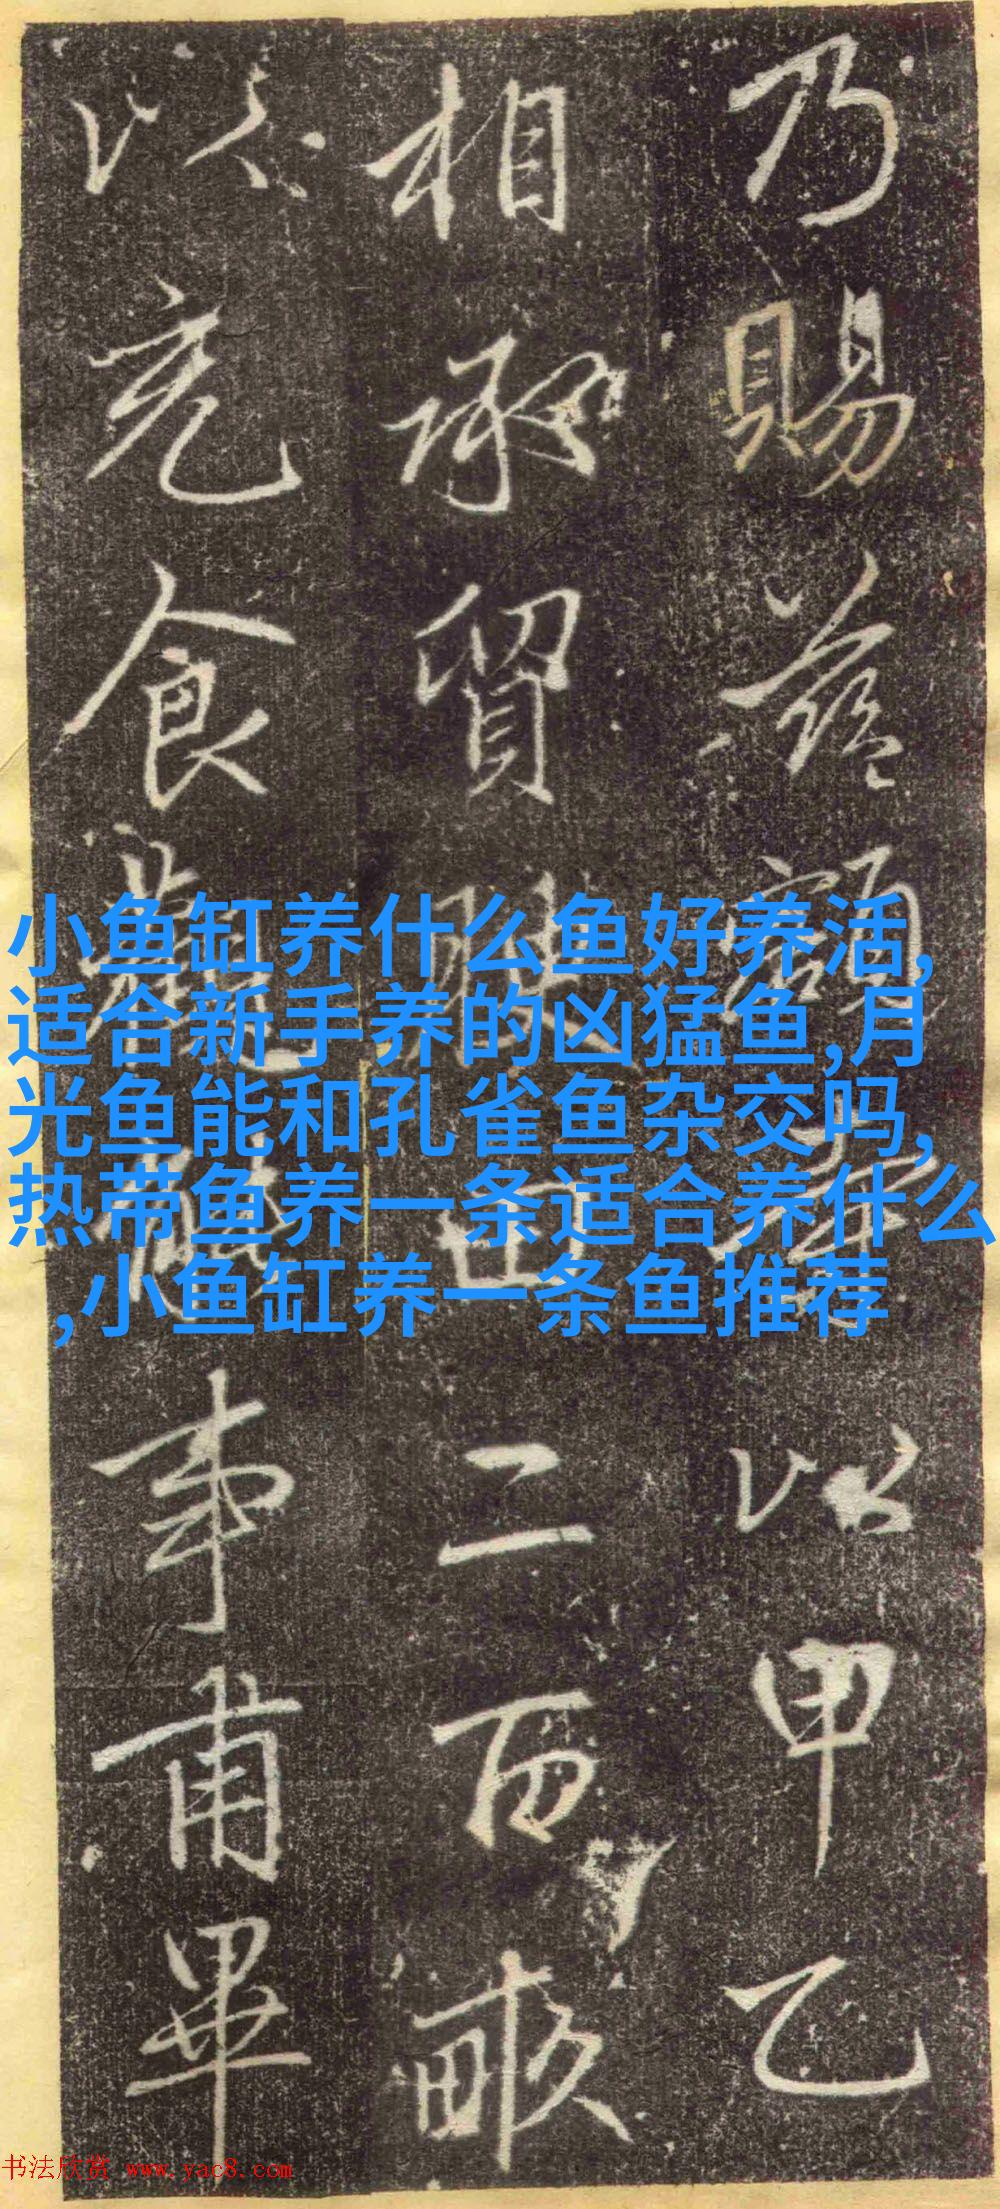 乃賜兹額以甲乙
相承貿腴田二百畝
以充食事甫畢
小鱼缸养什么鱼好养活,
适合新手养的凶猛鱼,月
光鱼能和孔雀鱼杂交吗,
热带鱼养一条适合养什么
,小鱼缸养一条鱼推荐
书法欣赏 www.yac8.com